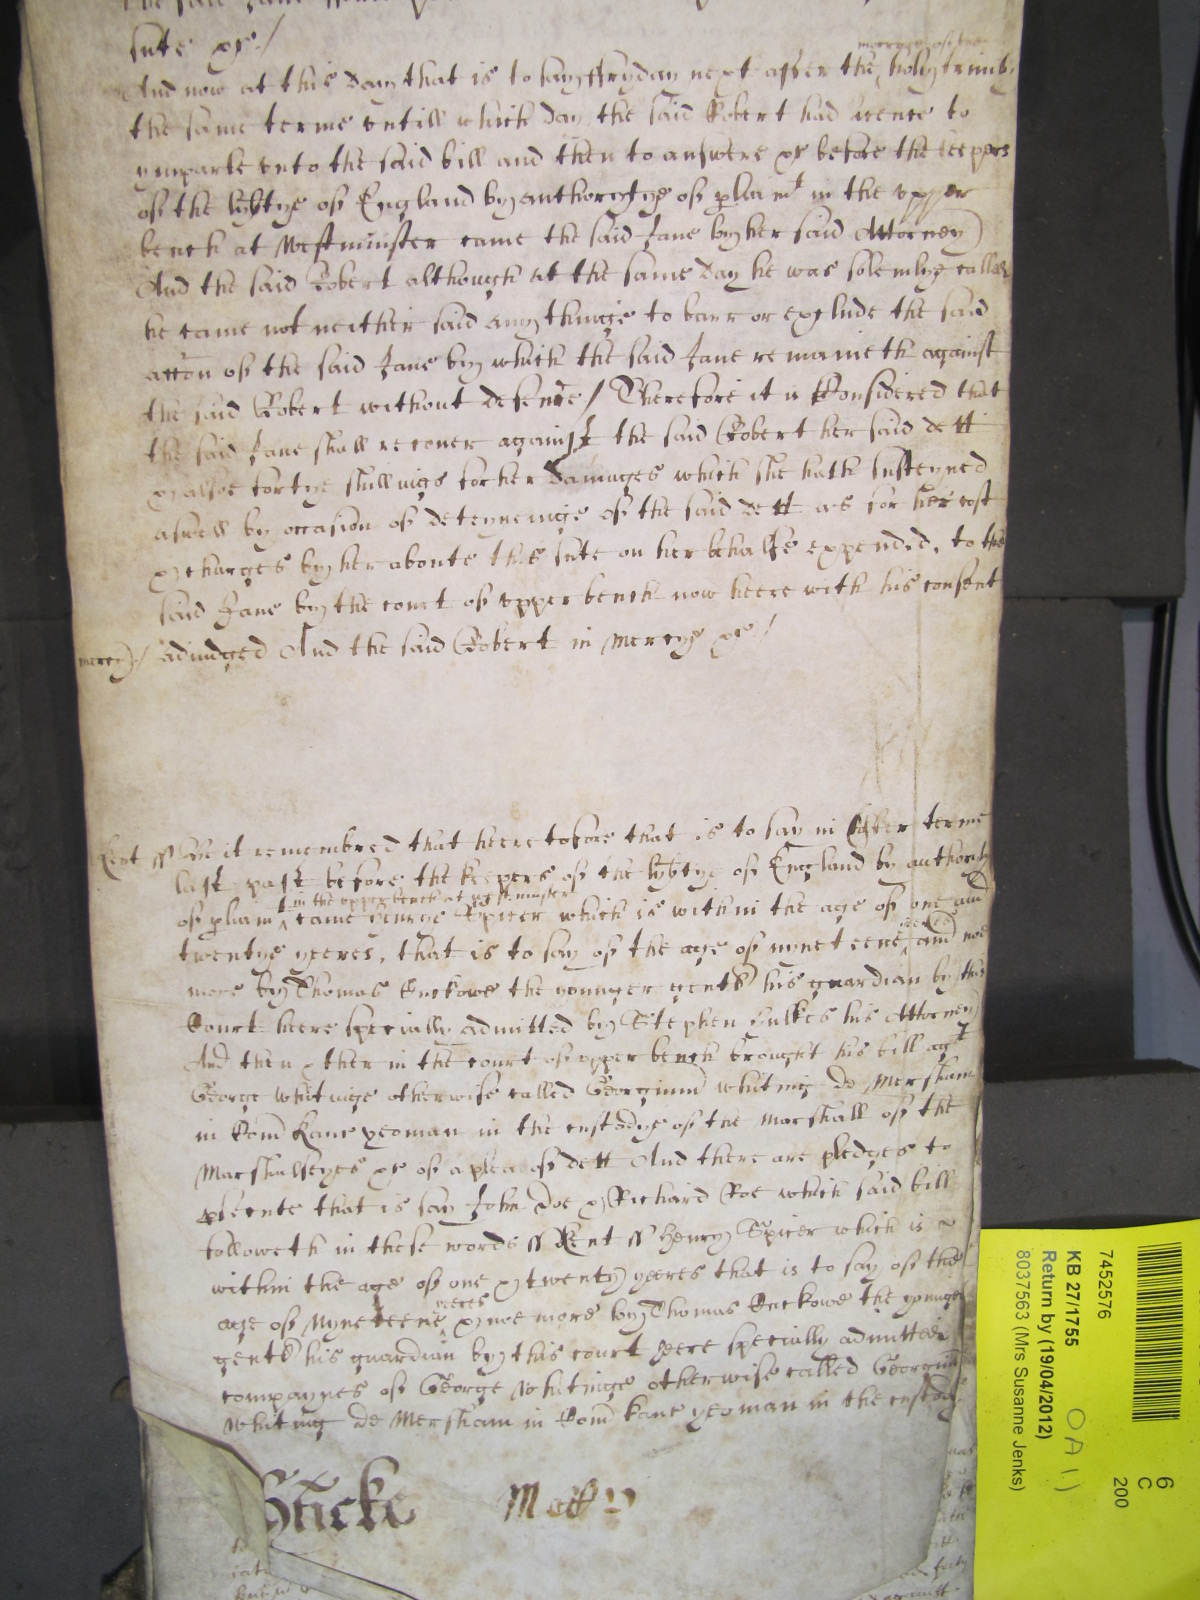 sute &c /
And now at this day that is to say ffryday next after the morrow of the holy trinity
the same terme untill which day the said Robert had licence to
ymparle unto the said bill and then to answere &c before the keepers
of the lib'tye of England by authoritye of p'liamt in the upper
bench at Westminster came the said Jane by her said Attorney
And the said Robert although at the same day he was solemlye called
he came not neither said any thinge to barr or exclude the said
accon of the said Jane by which the said Jane remaineth against
the said Robert without defence / Therefore it is Considered that
the said Jane shall recover against the said Robert her said dett
& alsoe fortye shillings for her damages which she hath susteyned
aswell by occasion of deteyneinge of the said dett as for her cost
& charges by her aboute this sute on her behalfe expended, to the
said Jane by the court of upper bench now heere with his consent
mercy / adiudged And the said Robert in mercye &c /
Kent ss Be it remembred that heeretofore that is to say in Easter terme
last past before the keepers of the lib'tye of England by authority
of p'liamt in the upper bench at westminster came Henrye Spicer which is within the age of one and
twentye yeeres, that is to say of the age of nyneteene yeeres and noe
more by Thomas the younger gent his guardian by this
Court heere specially admitted by Stephen Hulkes his Attorney
And then & ther in the court of upper bench brought his bill agt
George Whitinge otherwise called Georgium Whiting de Mersham
in Com Kanc yeoman in the custodye of the Marshall of the
Marshalseyes &c of a plea of dett And there are pledges to
p'secute that is say John Doe & Richard Roe which said bill
followeth in these words ss Kent ss Henry Spicer which is
within the age of one & twenty yeeres that is to say of the
age of Nyneteene yeeres & noe more by Thomas the younger
gent his guardian by this court heere specially admitted
complaynes of George Whitinge otherwise called Georgium
Whiting de Mersham in Com Kanc yeoman in the custody
7452576
KB 27/1755
Return by (19/04/2012)
8037563 (Mrs Susanne Jenks)
6
C
200